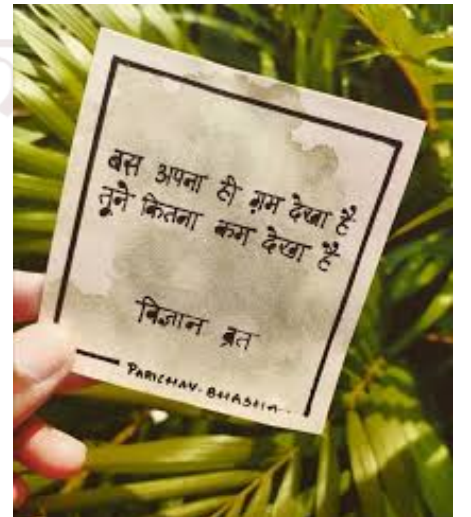 बस अपना ही ग़म देखा है
तूने कितना कम देखा है
विज्ञान व्रत
PARICHAY.BHASHA..